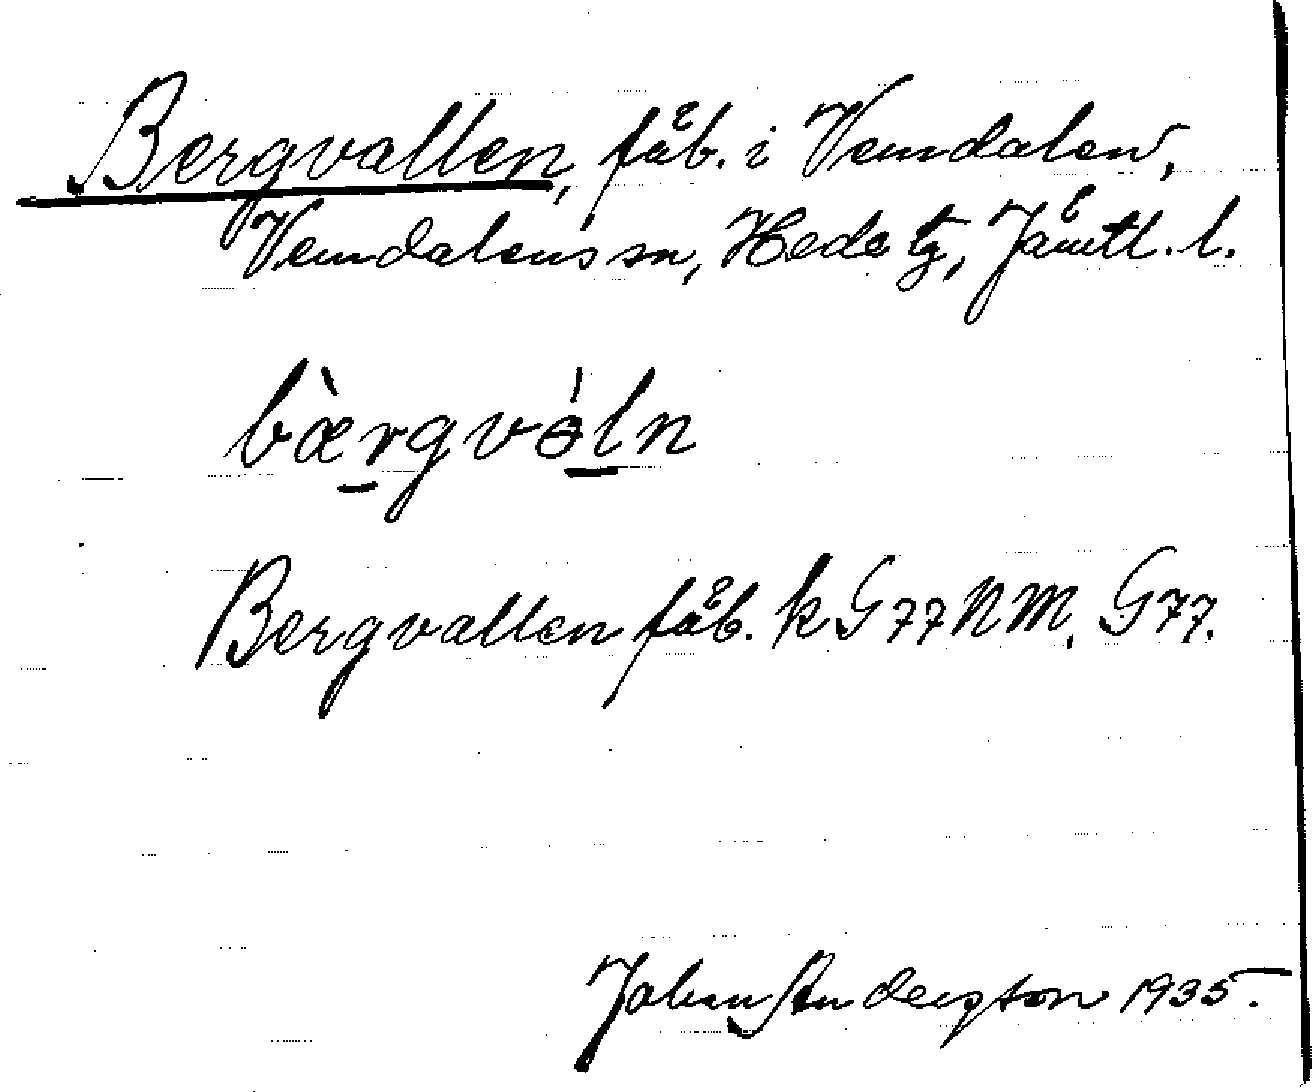 Bergvallen, fäb. i Vemdalen,
Vemdalens sn, Hede tg, Jämtl. l.
bæ̀rgvɵ́ln
Bergvallen fäb. k G77NM, G77.
Johan Andersson 1935.